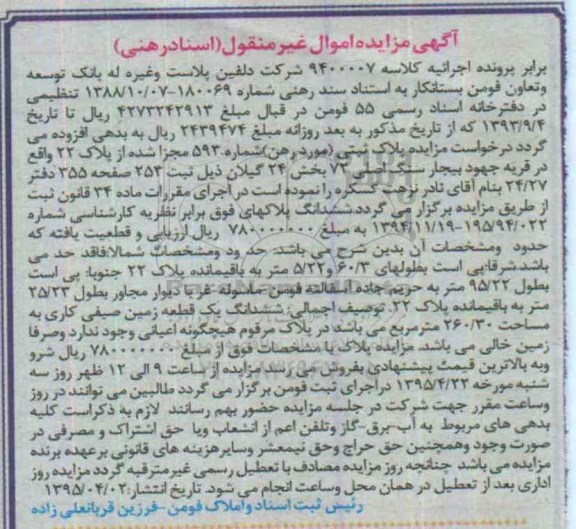 آگهی مزایده اموال غیر منقول(اسناد رهنی)
برابر پرونده اجرائیه کلاسه ۹۴۰۰۰۰۷ شرکت دلفین پلاست وغیره له بانک توسعه
وتعاون فومن بستانکار به استناد سند رهنی شماره ۱۸۰۰۶۹-۱۳۸۸/۱۰/۰۷ تنظیمی
در دفترخانه اسناد رسمی ۵۵ فومن در قبال مبلغ ۴۲۷۳۲۴۲۹۱۳ ریال تا تاریخ
۱۳۹۳/۹/۴ که از تاریخ مذکور به بعد روزانه مبلغ ۲۴۳۹۴۷۴ ریال به بدهی افزوده می
گردد درخواست مزایده پلاک ثبتی (مورد رهن)شماره ۵۹۳ مجزا شده از پلاک ۲۲ واقع
در قریه جهود بیجار سنگ اصلی ۷۲ بخش ۲۴ گیلان ذیل ثبت ۲۵۳ صفحه ۳۵۵ دفتر
۲۴/۲۷ بنام آقای نادر نزهت کسکره را نموده است در اجرای مقررات ماده ۳۴ قانون ثبت
از طریق مزایده برگزار می گردد.ششدانگ پلاکهای فوق برابر نظریه کارشناسی شماره
۱۹۵/۹۴/۰۲۲-۱۳۹۴/۱۱/۱۹ به مبلغ ۷۸۰۰۰۰۰۰۰۰ ریال ارزیابی و قطعیت یافته که
حدود ومشخصات آن بدین شرح می باشد. حدود ومشخصات شمالا:فاقد حد می
باشد.شرقا:پی است بطولهای ۶۰/۳ و۵/۲۲ متر به باقیمانده پلاک ۲۲ جنوبا: پی است
بطول ۹۵/۲۲ متر به حریم جاده آسفالته فومن ماسوله غربا دیوار مجاور بطول ۲۵/۲۳
متر به باقیمانده پلاک ۲۲. توصیف اجمالی: ششدانگ یک قطعه زمین صیفی کاری به
مساحت ۲۶۰/۳۰ مترمربع می باشد در پلاک مرقوم هیچگونه اعیانی وجود ندارد وصرفا
زمین خالی می باشد. مزایده پلاک با مشخصات فوق از مبلغ ۷۸۰۰۰۰۰۰۰۰ ریال شرو
وبه بالاترین قیمت پیشنهادی بفروش می رسد.مزایده از ساعت ۹ الی ۱۲ ظهر روز سه
شنبه مورخه ۱۳۹۵/۴/۲۲ دراجرای ثبت فومن برگزار می گردد طالبین می توانند در روز
وساعت مقرر جهت شرکت در جلسه مزایده حضور بهم رسانند لازم به ذکراست کلیه
بدهی های مربوط به آب-برق-گاز وتلفن اعم از انشعاب ویا حق اشتراک و مصرفی در
صورت وجود وهمچنین حق حراج وحق نیمعشر وسایر هزینه های قانونی برعهده برنده
مزایده می باشد چنانچه روز مزایده مصادف با تعطیل رسمی غیرمترقبه گردد مزایده روز
اداری بعد از تعطیل در همان محل وساعت انجام می شود. تاریخ انتشار:۱۳۹۵/۰۴/۰۲
رئیس ثبت اسناد واملاک فومن -فرزین قربانعلی زاده